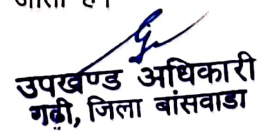 जाता है।
उपखण्ड अधिकारी
गढ़ी, जिला बांसवाडा